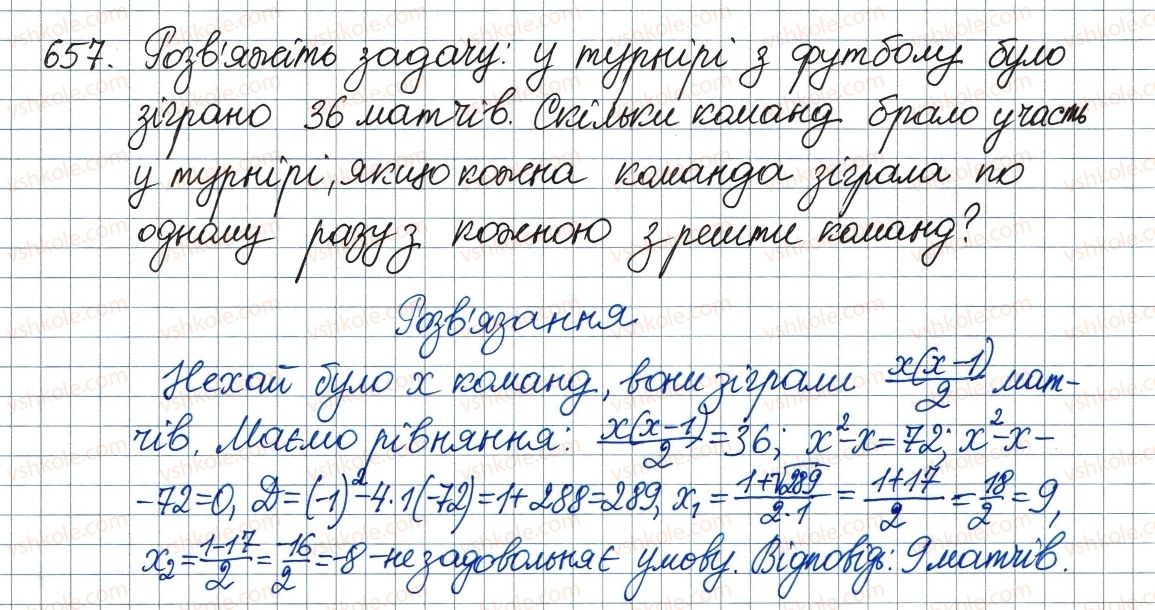 657. Розв'яжіть задачу: у турнірі з футболу було
зіграно 36 матчів. Скільки команд брало участь
у турнірі, якщо кожна команда зіграла по
одному разу з кожною з решти команд?
Розв'язання
Нехай було x команд, вони зіграли x(x-1)/2 мат-
чів. Маємо рівняння: x(x-1)/2 = 36; x²-x=72; x²-x-
-72=0, D=(-1)²-4·1(-72)=1+288=289, x₁ = (1+√289)/(2·1) = (1+17)/2 = 18/2 = 9,
x₂ = (1-17)/2 = -16/2 = -8 - не задовольняє умову. Відповідь: 9 матчів.